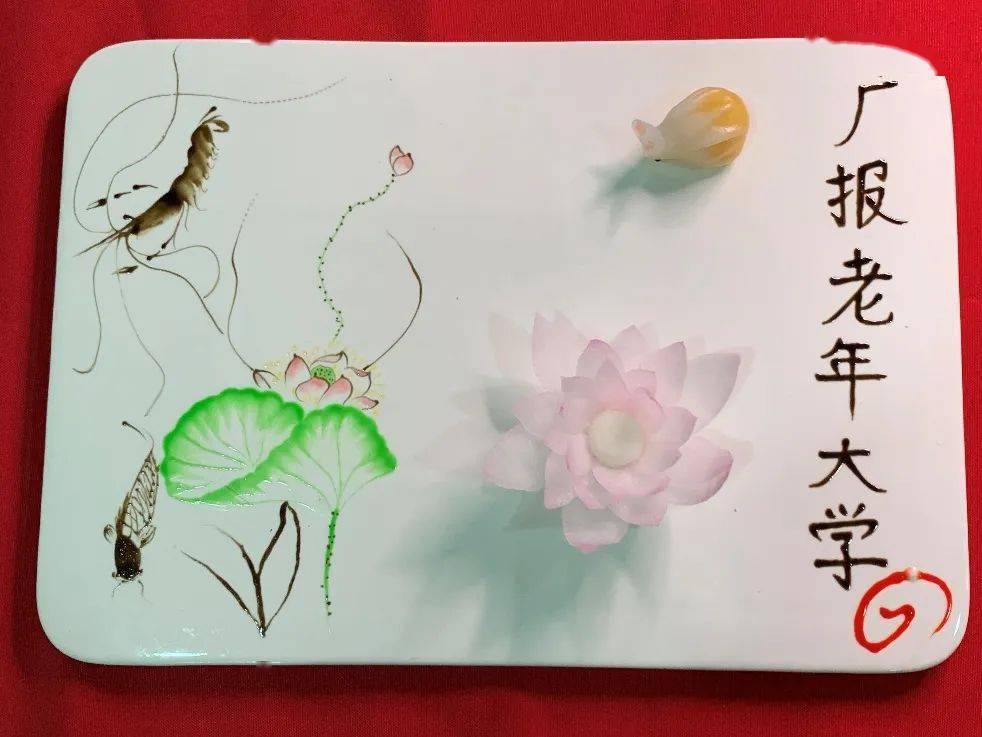 厂报老年大学